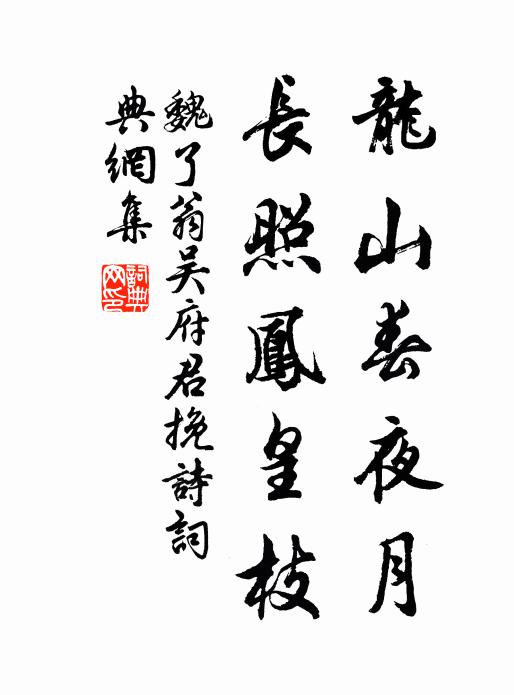 龍山春夜月
長照鳳皇枝
魏了翁吴府君挽詩詞
典網集
詞典網印